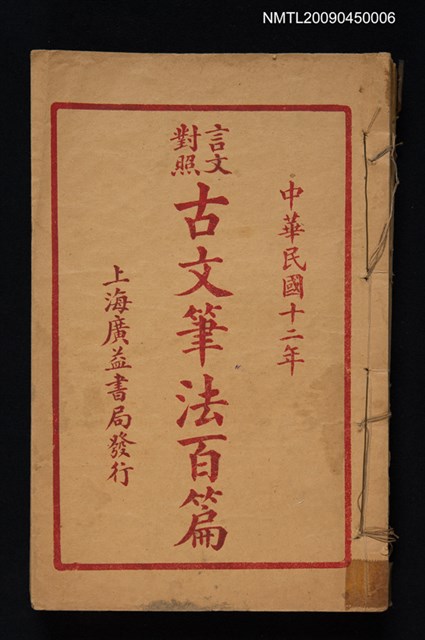 NMTL20090450006
中華民國十二年
言文
對照
古文筆法百篇
上海廣益書局發行